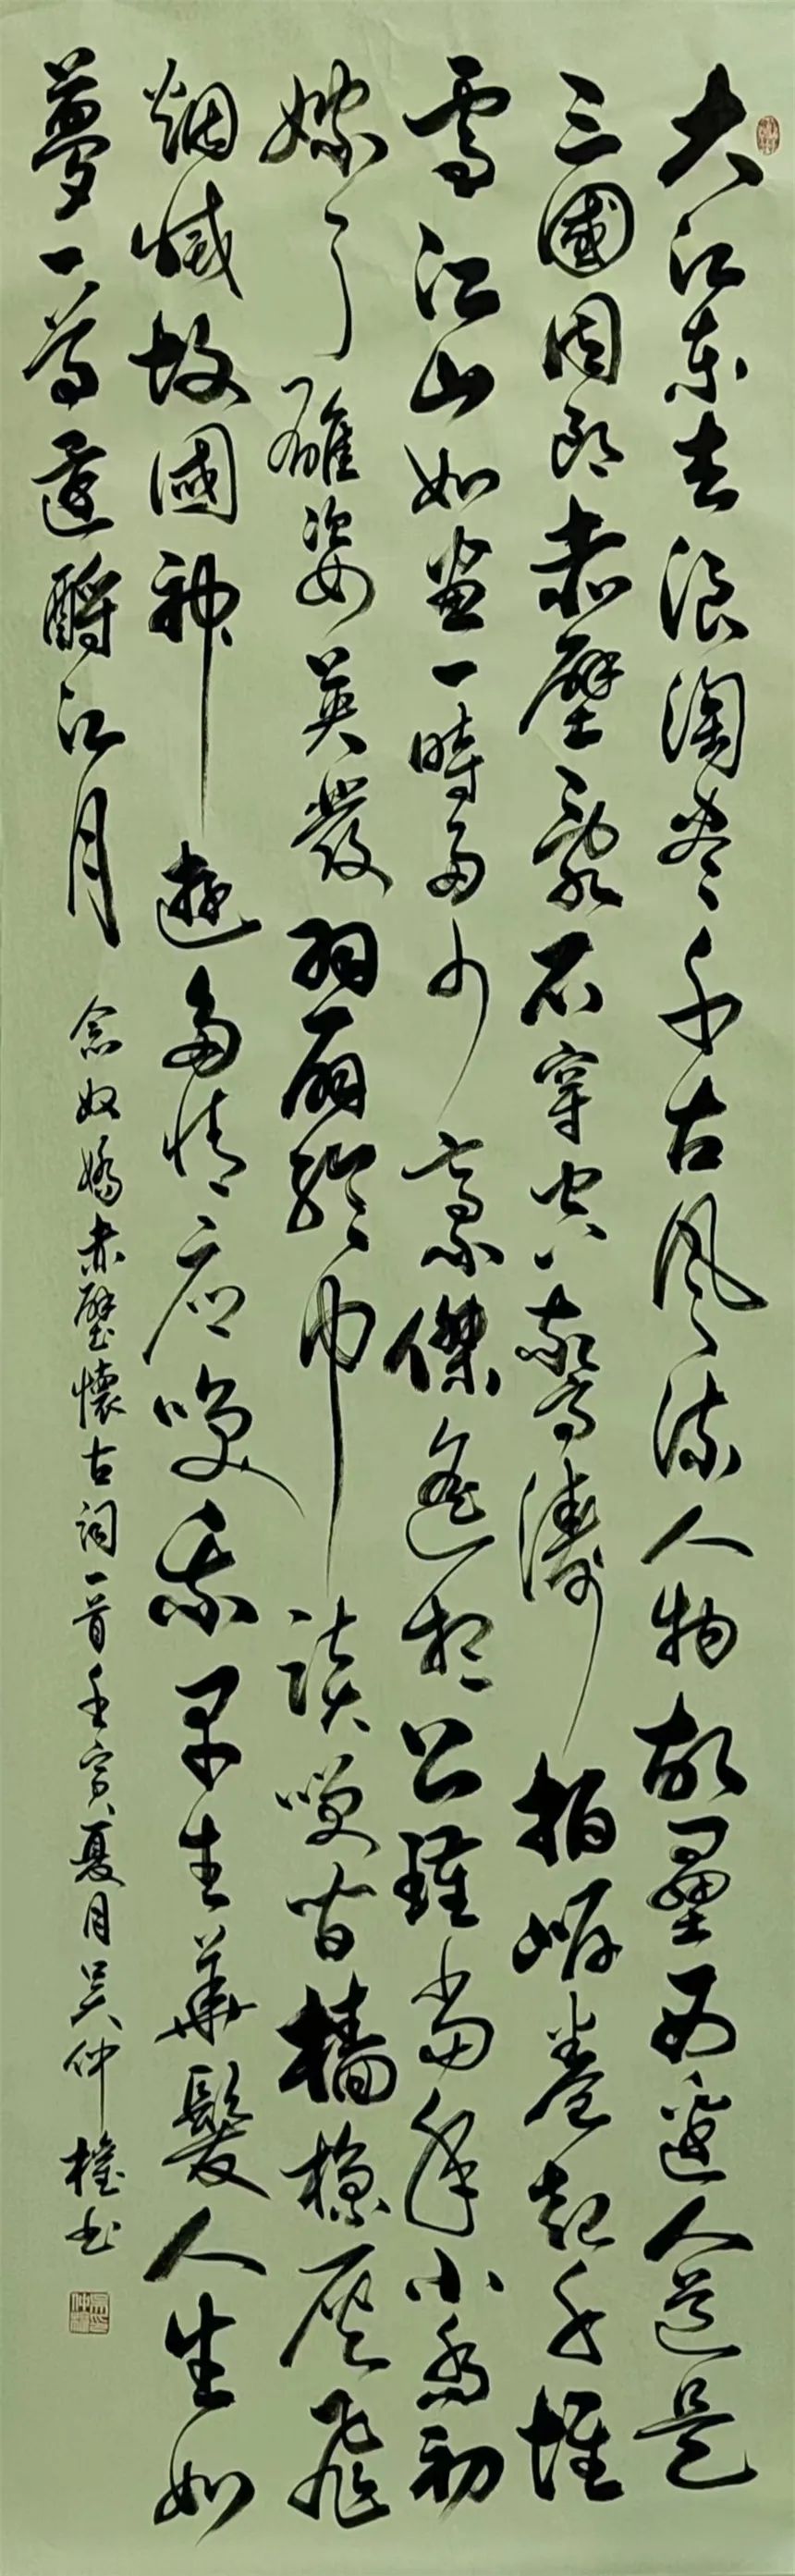 大江东去浪淘尽千古风流人物故垒西边人道是
三國周郎赤壁乱石穿空驚濤拍岸卷起千堆
雪江山如画一時多少豪傑遥想公瑾当年小乔初
嫁了雄姿英發羽扇纶巾談笑间檣橹灰飛
烟滅故國神遊多情应笑我早生華髮人生如
夢一尊還酹江月
念奴嬌赤壁懷古词一首壬寅夏月吴仲權书